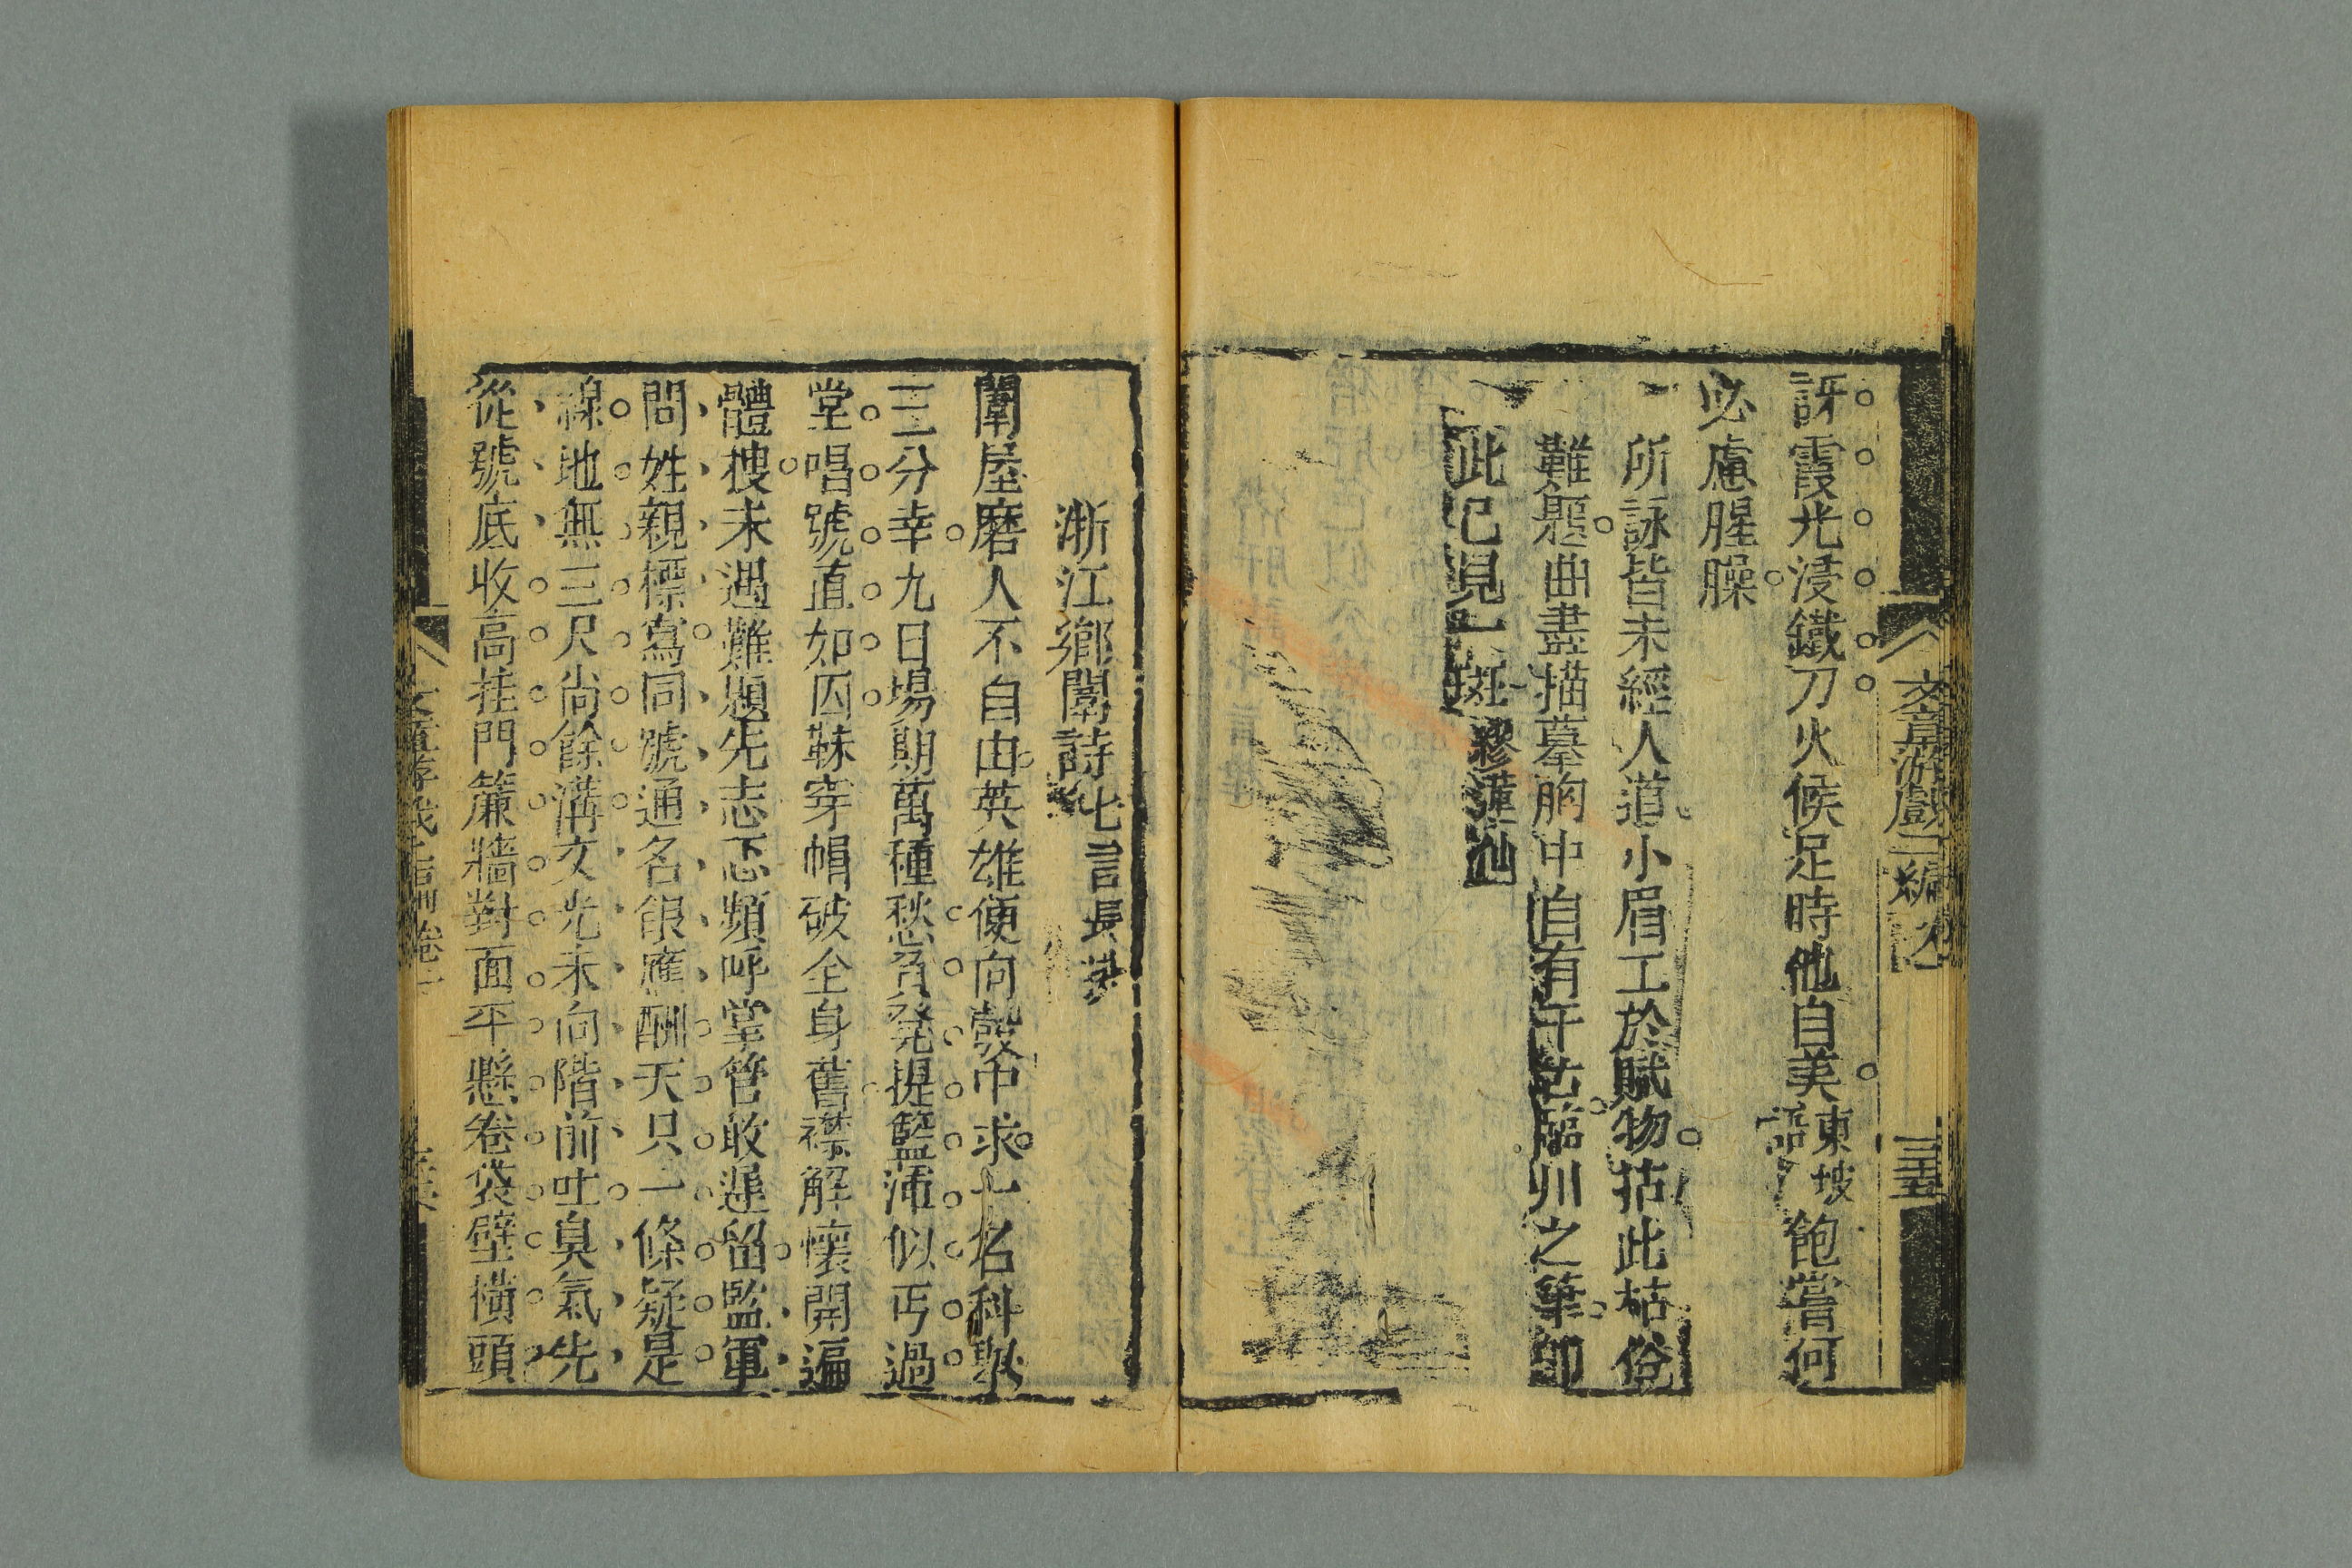 文章游戲二編
訝霞光浸鐵刀火候足時他自美東坡語飽嘗何
必慮腥臊
所詠皆未經人道小眉工於賦物拈此枯俗
難題曲盡描摹胸中自有千古臨川之筆卽
此已見一斑繆蓮仙
浙江鄉闈詩七言長
闈屋磨人不自由英雄便向彀中求七名科聚
三分幸九日場期萬種愁負凳提籃渾似丐過
堂唱號直如囚靴穿帽破全身舊襟解懷開遍
體搜未遇難題先忐忑頻呼掌管敢遲留監軍
問姓親標寫同號通名假應酬天只一條疑是
線地無三尺尚餘溝文光未向階前吐臭氣先
從號底收高挂門簾牆對面平懸卷袋壁橫頭